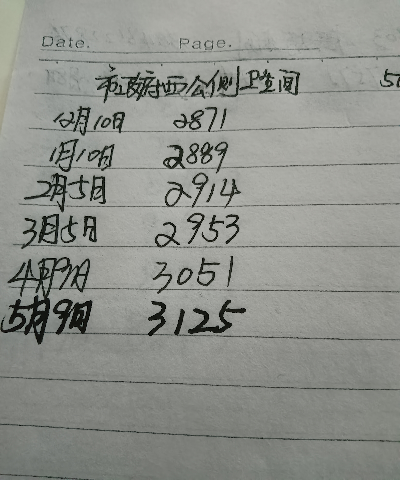 Date. Page.
市政府西公侧卫生间
12月10日 2871
1月10日 2889
2月5日 2914
3月5日 2953
4月9日 3051
5月9日 3125